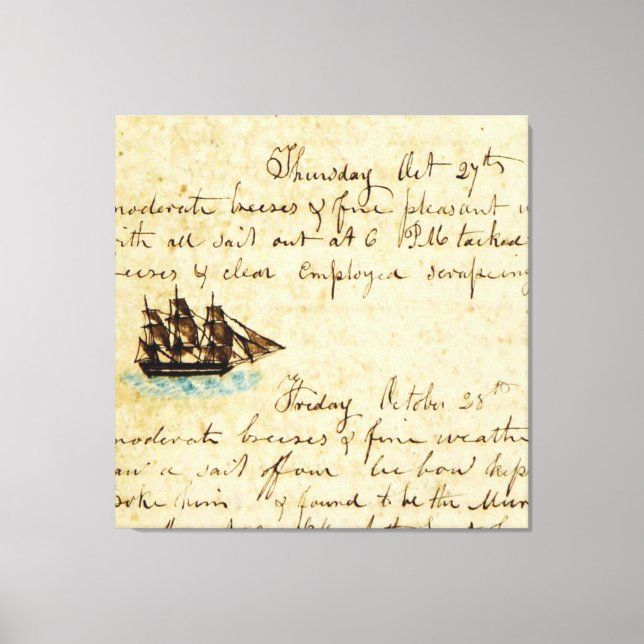 Thursday Oct 27th
moderate breeses & fine pleasant
with all sail out at 6 PM tacked
breeses & clear Employed scrapeing
Friday October 28th
moderate breeses & fine weathe
saw a sail of our lee bow kep
spoke him & found to be the Mun